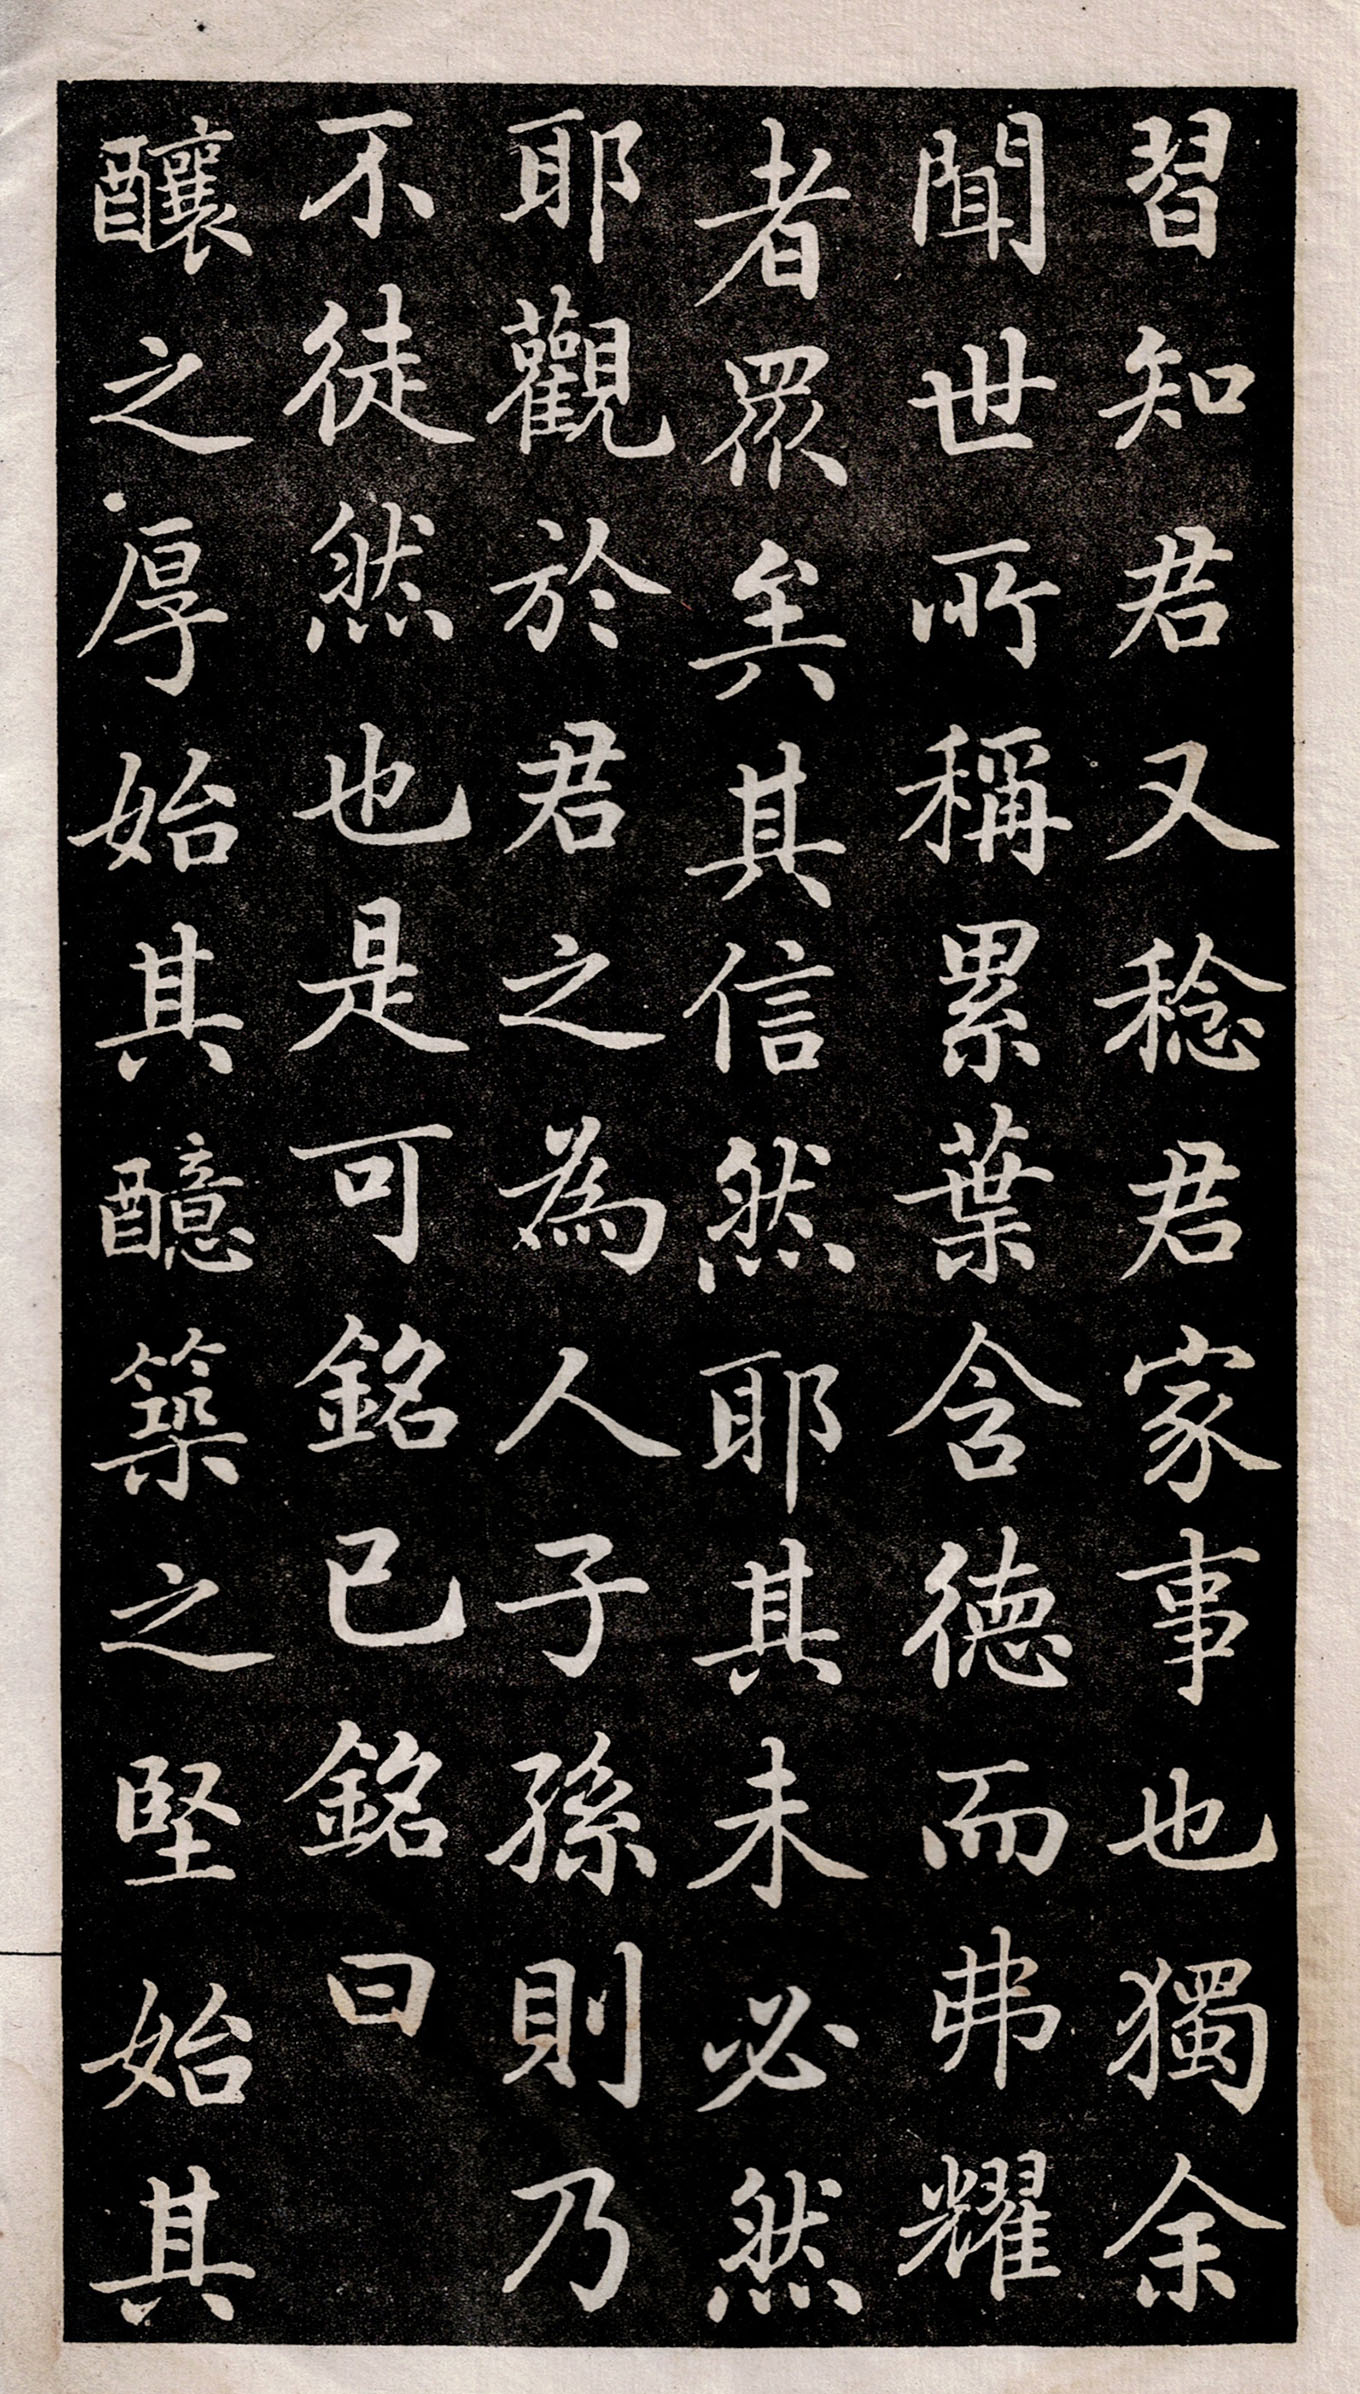 習知君又稔君家事也獨余
聞世所稱累葉含德而弗耀
者眾矣其信然耶其未必然
耶觀於君之為人子孫則乃
不徒然也是可銘已銘曰
釀之厚始其醷築之堅始其